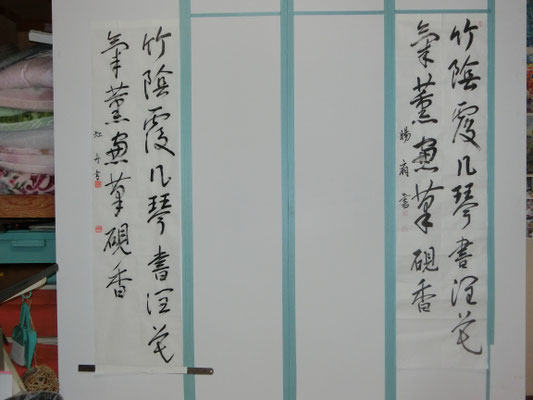 竹陰覆几琴書潤花
氣薰窓筆硯香
書
竹陰覆几琴書潤花
氣薰窓筆硯香
書